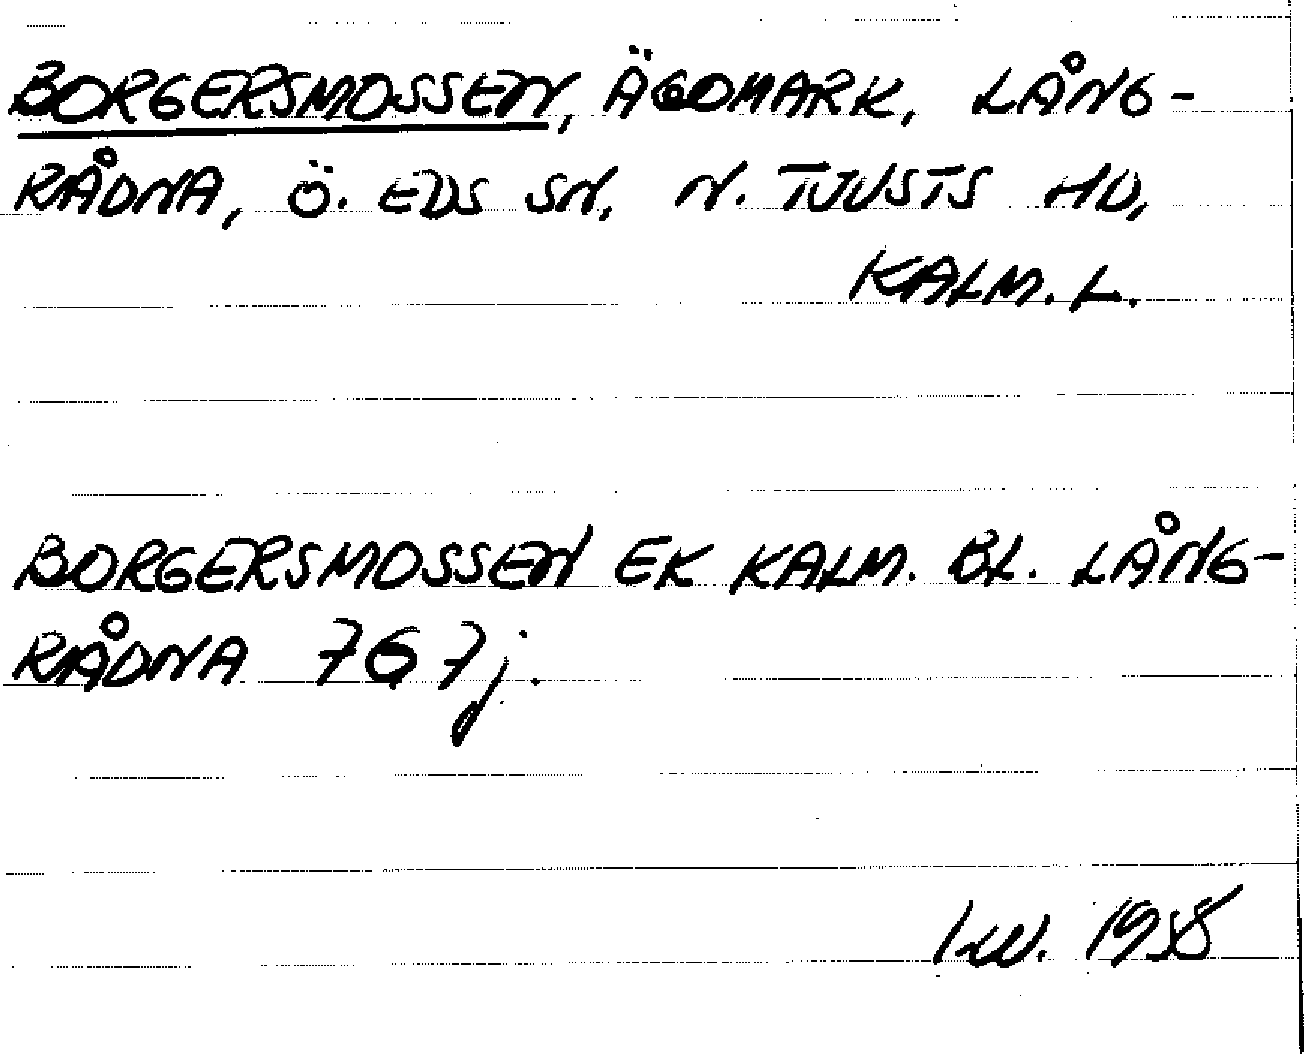 BORGERSMOSSEN, ÄGOMARK, LÅNG-
RÅDNA, Ö. EDS SN, N. TJUSTS HD,
KALM. L.
BORGERSMOSSEN EK KALM. BL. LÅNG-
RÅDNA 767j.
1958